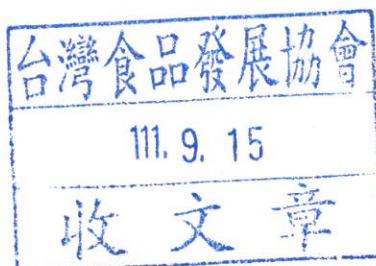 台灣食品發展協會
111. 9. 15
收文章